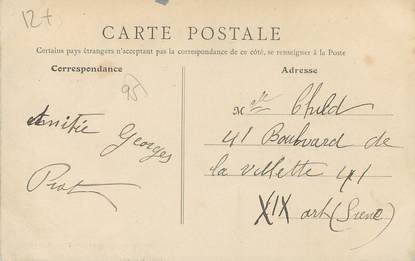 12+
CARTE POSTALE
Certains pays étrangers n'acceptant pas la correspondance de ce côté, se renseigner à la Poste
Correspondance
Adresse
95
Amitié Georges
M elle Child
41 Boulevard de
la villette
XIX art (Seine)